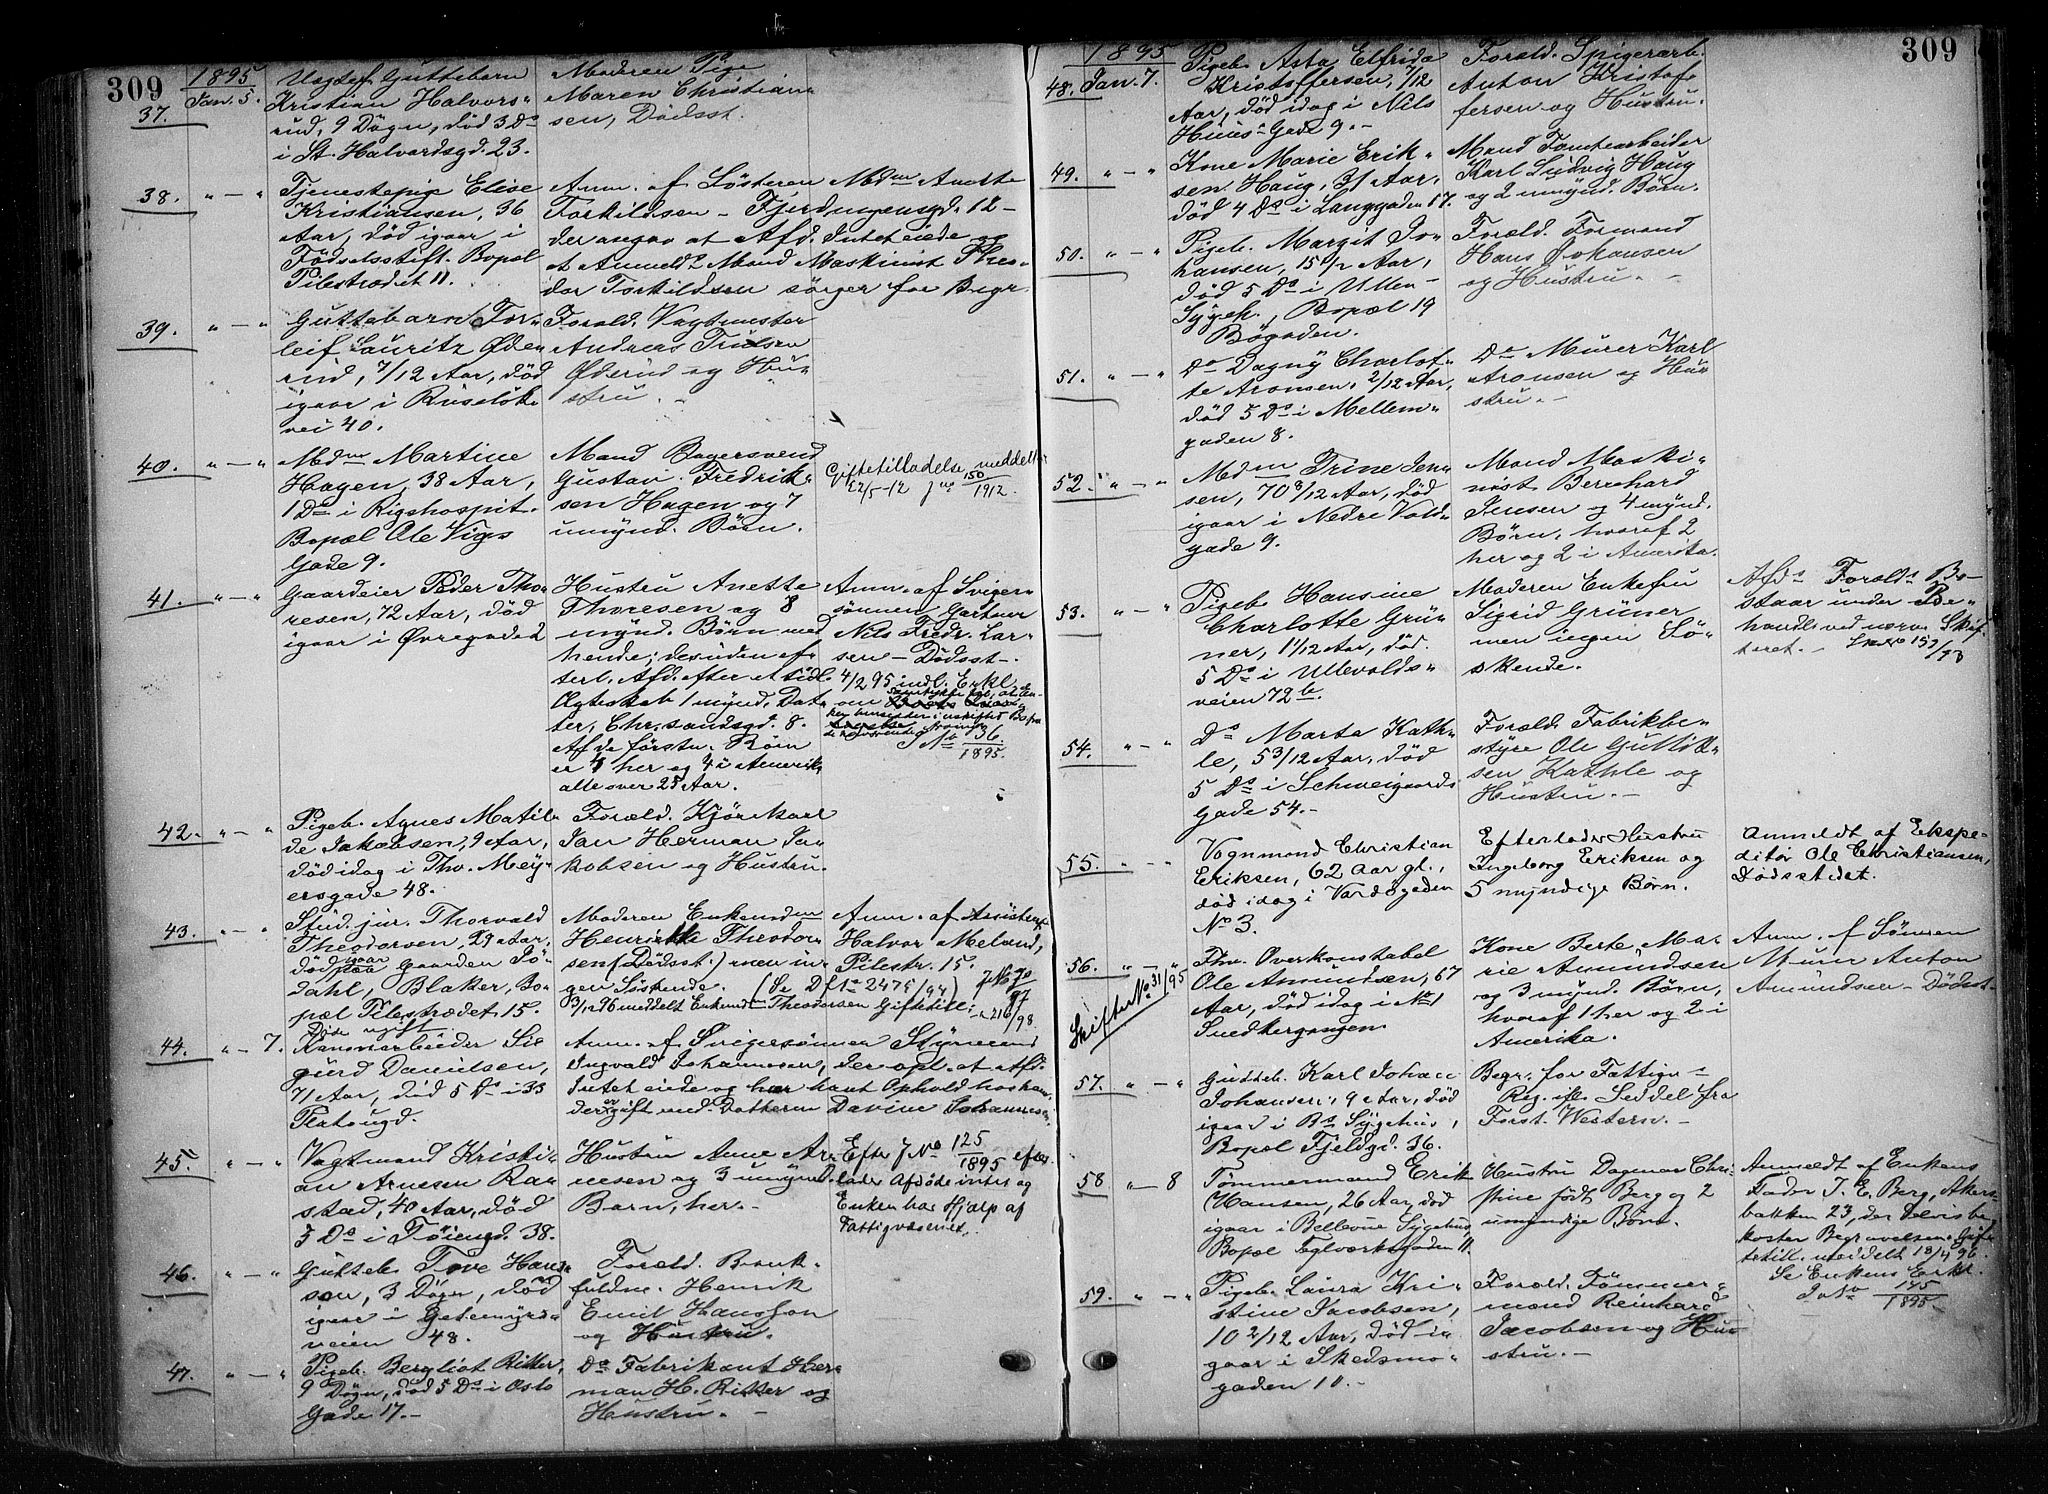 309
1895
37. Jan. 5.
Uægtef. Guttebarn
Kristian Halvors-
rud, 9 Døgn, død 3 Ds
i St. Halvardsgd. 23.
Moderen Pige
Maren Christian-
sen, Dødsst.
38. " — "
Tjenestepige Elise
Kristiansen, 36
Aar, død igaar i
Fødselsstift. Bopæl
Pilestrædet 11.
Anm. af Søsteren Mdm Anette
Torkildsen – Fjerdingensgd. 12 –
der angav at Afd. Intet eiede og
at Anmeld.s Mand Maskinist Theo-
dor Torkildsen sørger for Begr.
39. " — "
Guttebarn Tor-
leif Lauritz Øde-
rud, 7/12 Aar, død
igaar i Ruseløk-
vei 40.
Foræld. Vagtmester
Andreas Trulsen
Øderud og Hu-
stru. –
40. " — "
Mdm Martine
Hagen, 38 Aar,
1 Ds i Rigshospit.
Bopæl Ole Vigs
Gade 9.
Mand Bagersvend
Gustav Fredrik-
sen Hagen og 7
umynd. Børn.
Giftetilladelse meddelt
22/5-12 J No 150/1912.
41. " — "
Gaardeier Peder Tho-
resen, 72 Aar, død
igaar i Øvregade 2
Hustru Anette
Thoresen og 8
mynd. Børn med
hende; desuden ef-
terl. Afd. efter tidl.
Ægteskab 1 mynd. Dat-
ter, Chr. sandsgd. 8.
Af de første Børn
er 4 her og 4 i Amerik.
alle over 25 Aar.
Anm. af Sviger-
sønnen Gartner
Nils Fredr. Lar-
sen – Dødsst –
4/2 95 indl. Erkl.
om
J No 136/1895.
42. " — "
Pigeb. Agnes Matil-
de Jakobsen, 9 Aar,
død idag i Thv. Mey-
ersgade 48.
Foræld. Kjørekarl
Jan Herman Ja-
kobsen og Hustru.
43. " — "
Stud. jur. Thorvald
Theodorsen, 29 Aar,
død igaar paa Gaarden Sø-
dahl, Blaker, Bo-
pæl Pilestrædet 15.
Moderen Enkemdm
Henriette Theodor-
sen (Dødsst.) men in-
gen Søskende. (Se D f No 2475/94)
3/12 96 meddelt Enkemdm Theodorsen Giftetill.
Anm. af Assistent
Halvor Meland,
Pilestr. 15.
44. " — 7.
Døde ugift.
Kanonarbeider Si-
gurd Danielsen,
71 Aar, død 5 Ds i 33
Platougd.
Anm. af Svigersønnen Styrmand
Ingvald Johannesen, der opl. at Afd.
Intet eiede og har havt Ophold hos ham,
der er gift med Datteren Davine Johannesen
45. " — "
Vagtmand Kristi-
an Arnesen Ra-
stad, 40 Aar, død
5 Ds i Tøiengd. 38.
Hustru Anne Ar-
nesen og 3 umynd.
Børn, her. –
Efter J No 125/1895 efter-
lader Afdøde intet og
Enken har Hjælp af
Fattigvæsenet.
46. " — "
Gutteb. Tove Hans-
son, 3 Døgn, død
igaar i Geitemyrs-
veien 48.
Foræld. Bank-
fuldm. Henrik
Emil Hansson
og Hustru.
47. " — "
Pigeb. Bergliot Ritter,
9 Døgn, død 5 Ds i Oslo
Gade 17. –
Ds Fabrikant Her-
man H. Ritter og
Hustru. –
309
1895
48. Jan. 7.
Pigeb. Asta Elfrida
Kristoffersen, 7/12
Aar, død idag i Nils
Huus' Gade 9. –
Foræld. Spigerarb.
Anton Kristof-
fersen og Hustru.
49. " — "
Kone Marie Erik-
sen Haug, 31 Aar,
død 4 Ds i Langgaden 17.
Mand Tomtearbeider
Karl Ludvig Haug
og 2 umynd. Børn.
50. " — "
Pigeb. Margit Jo-
hansen, 15 1/2 Aar,
død 5 Ds i Ullev-
Sygeh., Bopæl 19
Bøgaden.
Foræld. Formand
Hans Johansen
og Hustru. –
51. " — "
Ds Dagny Charlot-
te Aronsen, 2/12 Aar,
død 5 Ds i Mellem-
gaden 8.
Ds Murer Karl
Aronsen og Hu-
stru. –
52. " — "
Mdm Trine Jen-
sen, 70 8/12 Aar, død
igaar i Nedre Vold-
gade 9.
Mand Maski-
nist Bernhard
Jensen og 4 mynd.
Børn, hvoraf 2
her og 2 i Amerika.
53. " — "
Pigeb. Hansine
Charlotte Grü-
ner, 11/12 Aar, død
5 Ds i Ullevolds-
veien 72 b.
Moderen Enkefru
Sigrid Grüner
men ingen Sø-
skende.
Afds Forælds Bo
staar under Be-
handl. ved nærv. Skif-
teret. –
54. " — "
Ds Marta Kath-
le, 5 3/12 Aar, død
5 Ds i Schweigaards
Gade 54. –
Foræld. Fabrikbe-
styrer Ole Gullik-
sen Kathle og
Hustru. –
55. " — "
Vognmand Christian
Eriksen, 62 Aar gl.,
død idag i Vardøgaden
No 3.
Efterlader Hustru
Ingeborg Eriksen og
5 myndige Børn.
Anmeldt af Ekspe-
ditør Ole Christiansen,
Dødsstedet.
56. " — "
Skifter No 31/95
Fhv. Overkonstabel
Ole Amundsen, 67
Aar, død idag i No 1
Snedkergangen.
Kone Berte Ma-
rie Amundsen
og 3 mynd. Børn,
hvoraf 1 her og 2 i
Amerika.
Anm. af Sønnen
Murer Anton
Amundsen – Dødsst.
57. " — "
Gutteb. Karl Johan
Johansen, 9 Aar, død
igaar i Bs Sygehus,
Bopæl Fjeldgd. 36.
Begr. for Fattigv–
Reg. ifl. Seddel fra
Forst. Western. –
58 " — 8
Tømmermand Erik
Hansen, 26 Aar, død
igaar i Bellevue Sygehus,
Bopæl Teglverksgaden 11.
Hustru Dagmar Chri-
stine født Berg og 2
umyndige Børn.
Anmeldt af Enkens
Fader J. E. Berg, Akers-
bakken 23, der
koster Begravelsen. Gif-
tetill. meddelt 18/4 96.
Se Enkens Erkl.
J No 145/1895 –
59. " — "
Pigeb. Laura Kri-
stine Jacobsen,
10 2/12 Aar, død i-
gaar i Skedsmo-
gaden 11. –
Foræld. Tømmer-
mand Reinhard
Jacobsen og Hu-
stru. –